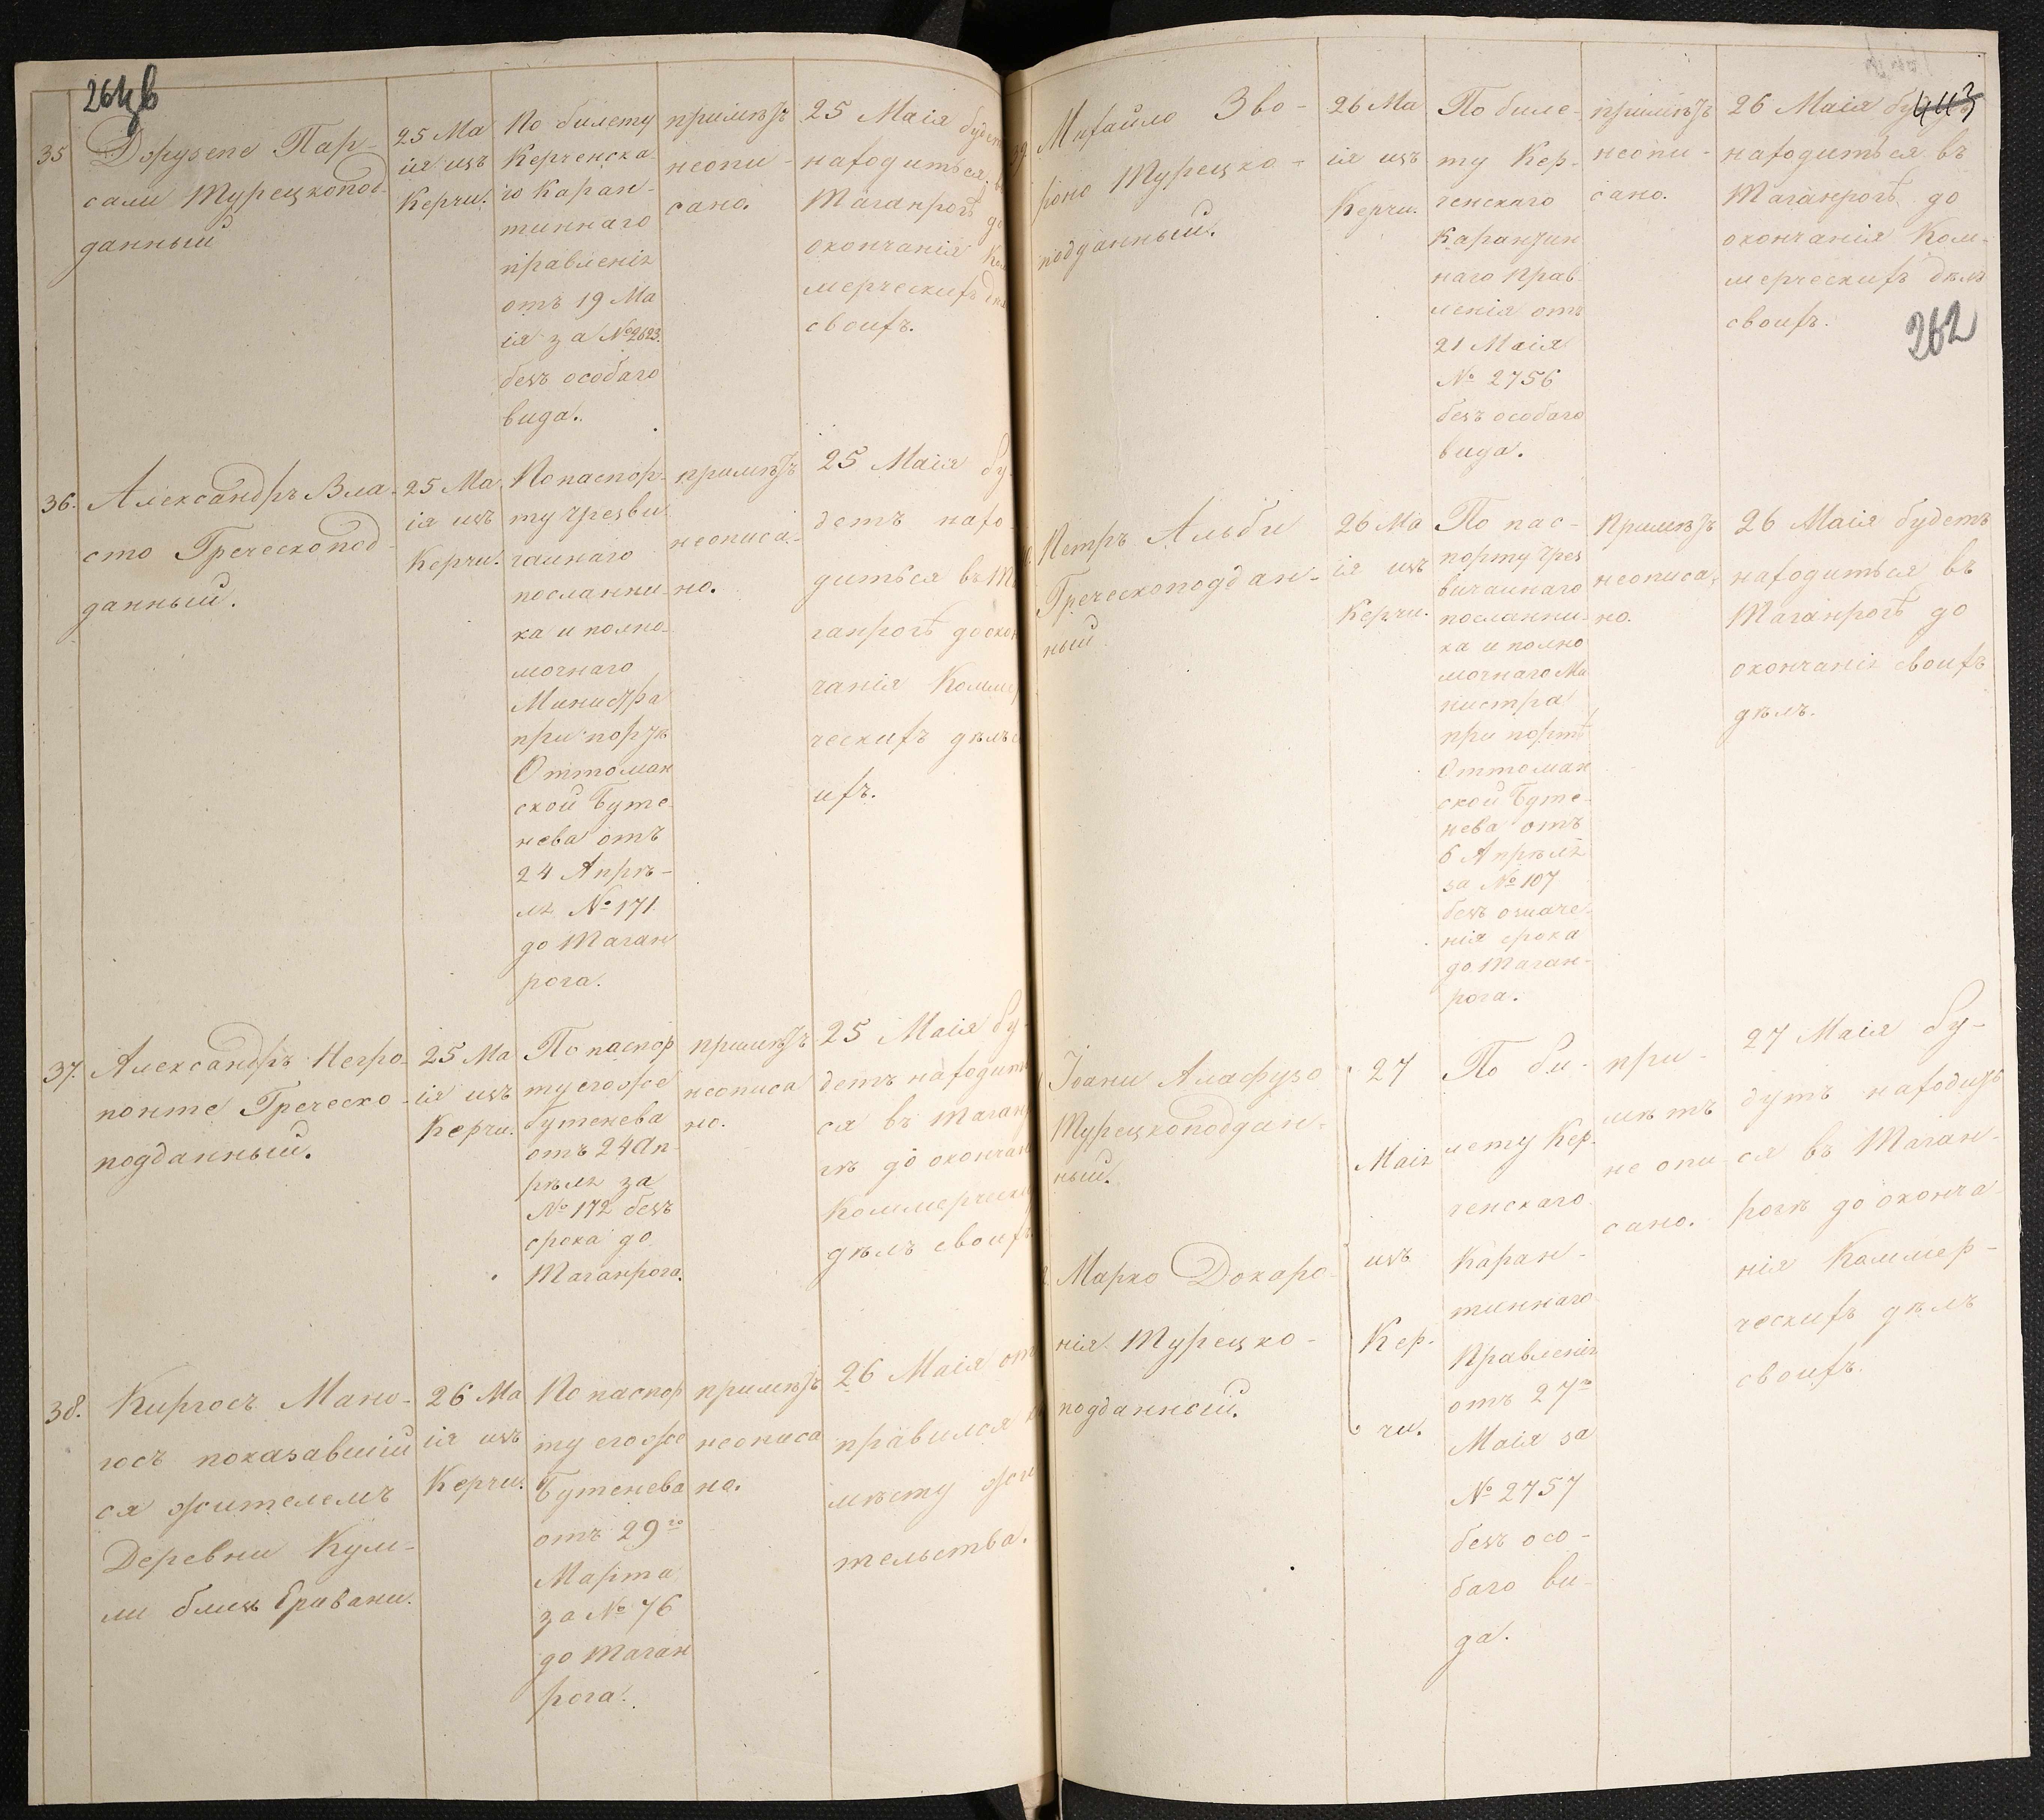 35
Джузепе Пар-
сали Турецкопод-
данный
25 Ма
ія изъ
Керчи.
По билету
Керченска
го Каран-
тиннаго
правленія
отъ 19 Ма
ія за № 2623.
безъ особаго
вида.
примѣтъ
неопи-
сано.
25 Маія будетъ
находиться
Таганрогѣ до
окончанія
мерческихъ
своихъ.
36.
Александръ Вла-
сто Греческопод-
данный.
25 Ма
ія изъ
Керчи.
По паспор-
ту чрезвы
чайнаго
посланни-
ка и полно-
мочнаго
Министра
при портѣ
Оттоман
ской Буте-
нева отъ
24 Апрѣ-
ля № 171.
до Таган
рога.
примѣтъ
неописа-
но.
25 Маія бу-
детъ нахо-
диться въ Та
ганрогѣ до окон
чанія Коммер
ческихъ дѣлъ
ихъ.
37.
Александръ Негро-
понте Греческо-
подданный.
25 Ма
ія изъ
Керчи.
По паспор
ту егоже
Бутенева
отъ 24 Ап-
рѣля за
№ 172 безъ
срока до
Таганрога.
примѣтъ
неописа
но.
25 Маія бу-
детъ находить
ся въ Таган
гѣ до окончан
Коммерчески
дѣлъ своихъ
38.
Киргосъ Мано-
госъ показавшій
ся жителемъ
Деревни Кули-
ли близъ Еривани.
26 Ма
ія изъ
Керчи.
По паспор
ту егоже
Бутенева
отъ 29го
Марта
за № 76
до Таган
рога.
примѣтъ
неописа
но.
26 Маія от
правился
мѣсту жи
тельства.
443
262
Михайло Зво-
роно Турецко-
подданный.
26 Ма
ія изъ
Керчи.
По биле-
ту Кер-
ченскаго
Карантин
наго Прав
ленія отъ
21 Маія
№ 2756
безъ особаго
вида.
примѣтъ
неопи-
сано.
26 Маія
находиться въ
Таганрогѣ до
окончанія Ком-
мерческихъ дѣлъ
своихъ.
Петръ Альби
Греческоподдан-
ный
26 Ма
ія изъ
Керчи.
По пас-
порту чрез
вычайнаго
посланни-
ка и полно
мочнаго Ми
нистра
при портѣ
Оттоман
ской Буте-
нева отъ
6 Апрѣля
за № 107
безъ означе-
нія срока
до Таган-
рога.
Примѣтъ
неописа-
но.
26 Маія будетъ
находиться въ
Таганрогѣ до
окончанія своихъ
дѣлъ.
Іоани Алафузо
Турецкоподдан-
ный.
Марко Докаро-
нія Турецко-
подданный.
27
Маія
изъ
Кер-
чи.
По би-
лету Кер-
ченскаго
Каран-
тиннаго
Правленія
отъ 27го
Маія за
№ 2757
безъ осо-
баго ви-
да.
при-
мѣтъ
не опи
сано.
27 Маія бу-
дутъ находить
ся въ Таган-
рогѣ до оконча
нія Коммер-
ческихъ дѣлъ
своихъ.